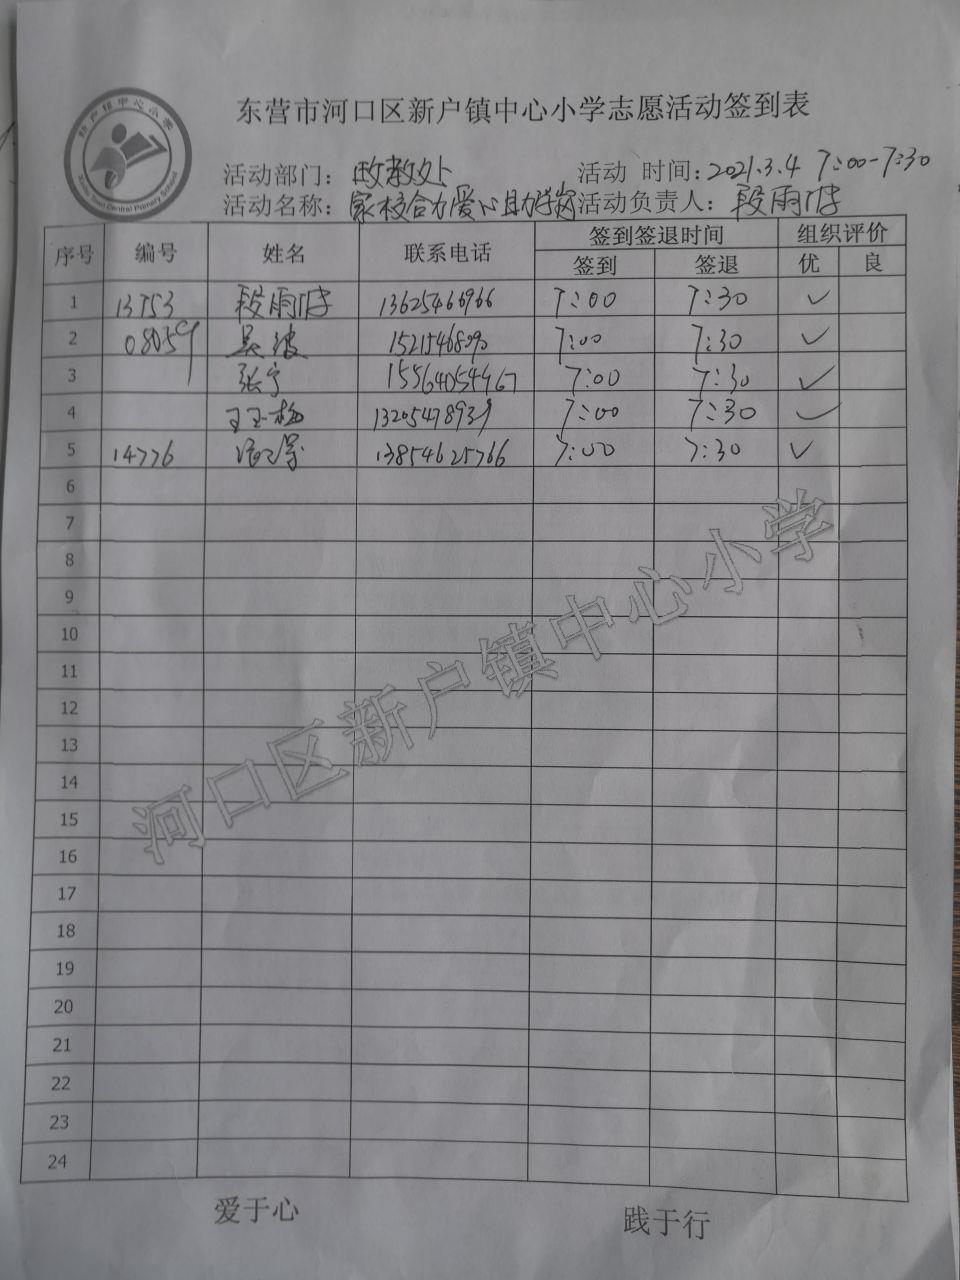 新户镇中心小学
Xinhu Town Central Primary School
东营市河口区新户镇中心小学志愿活动签到表
活动部门：政教处 活动 时间：2021.3.4 7:00-7:30
活动名称：家校合力爱心助学岗 活动负责人：段雨
序号 编号 姓名 联系电话 签到签退时间 组织评价
签到 签退 优 良
1 13753 段雨 13625466966 7:00 7:30 ✓
2 08059 吴波 7:00 7:30 ✓
3 张宁 15564054467 7:00 7:30 ✓
4 王玉梅 13205478939 7:00 7:30 ✓
5 14776 13854625766 7:00 7:30 ✓
6
7
8
9
10
11
12
13
14
15
16
17
18
19
20
21
22
23
24
河口区新户镇中心小学
爱于心 践于行